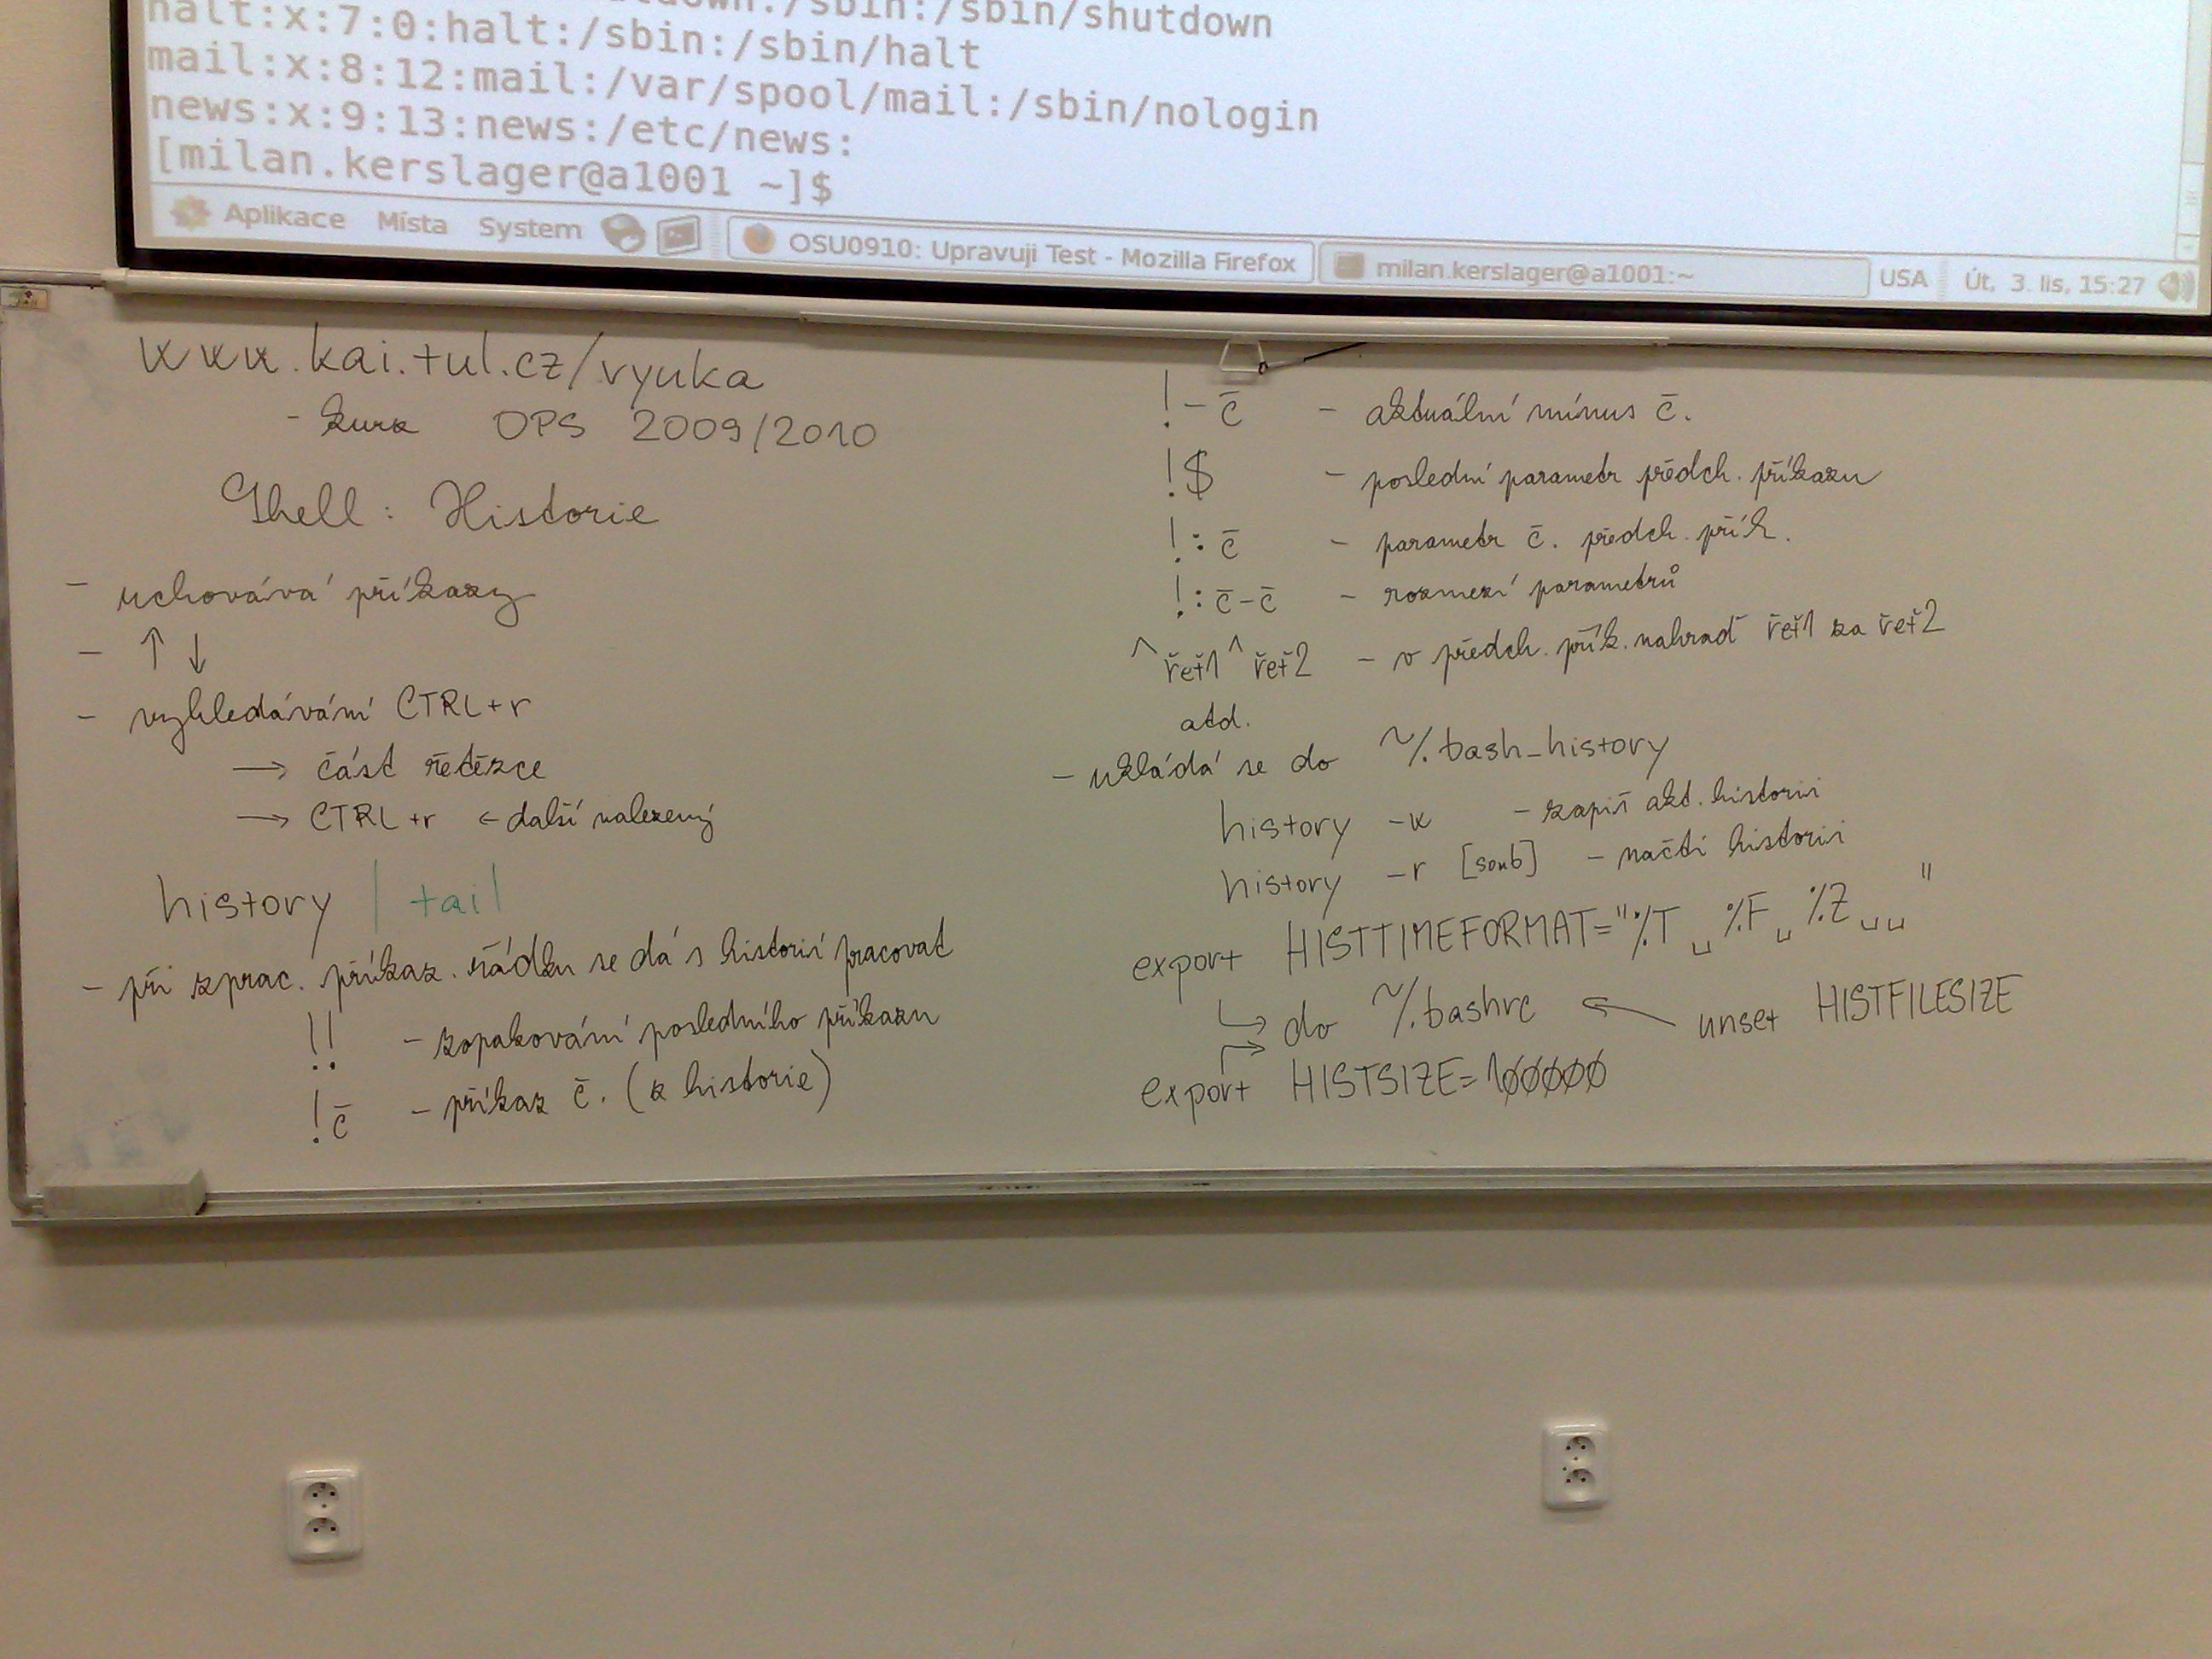 shutdown:/sbin:/sbin/shutdown
halt:x:7:0:halt:/sbin:/sbin/halt
mail:x:8:12:mail:/var/spool/mail:/sbin/nologin
news:x:9:13:news:/etc/news:
[milan.kerslager@a1001 ~]$
Aplikace Místa System OSU0910: Upravuji Test - Mozilla Firefox milan.kerslager@a1001:~ USA Út, 3. lis, 15:27
www.kai.tul.cz/vyuka
- kurz OPS 2009/2010
Shell: Historie
- uchovává příkazy
- ↑ ↓
- vyhledávání CTRL+r
→ část řetězce
→ CTRL+r ← další nalezený
history | tail
- při zprac. příkaz. řádku se dá s historií pracovat
!! - zopakování posledního příkazu
!č - příkaz č. (z historie)
!-č - aktuální mínus č.
!$ - poslední parametr předch. příkazu
!:č - parametr č. předch. přík.
!:č-č - rozmezí parametrů
^řet1^řet2 - v předch. přík. nahraď řet1 za řet2
atd.
- ukládá se do ~/.bash_history
history -w - zapiš akt. historii
history -r [soub] - načti historii
export HISTTIMEFORMAT="%T␣%F␣%Z␣␣"
↳ do ~/.bashrc ← unset HISTFILESIZE
export HISTSIZE=100000